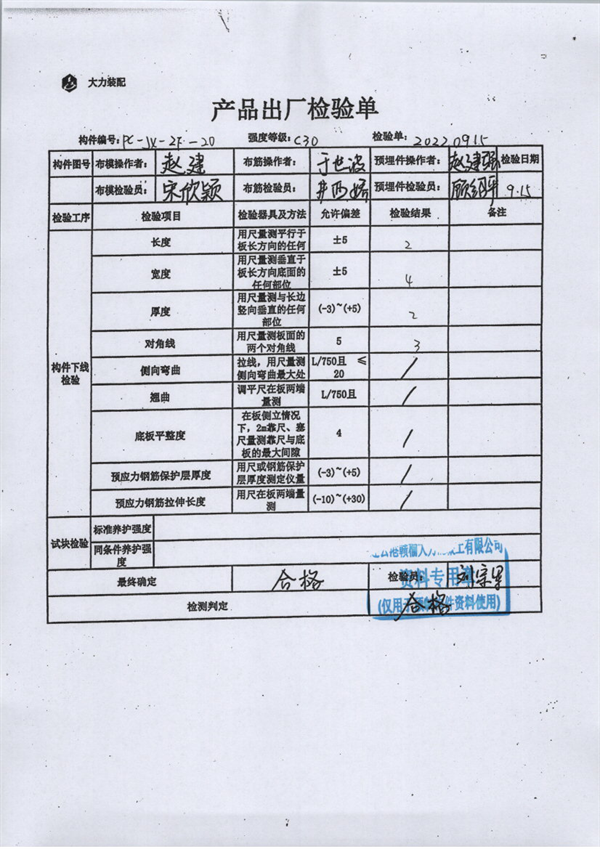 大力装配
产品出厂检验单
构件编号: PC-JX-2F-20 强度等级: C30 检验单: 20220915
构件图号 布模操作者: 赵建 布筋操作者: 于世波 预埋件操作者: 赵建强 检验日期
布模检验员: 宋欣颖 布筋检验员: 预埋件检验员: 9.15
检验工序 检验项目 检验器具及方法 允许偏差 检验结果 备注
构件下线检验
长度 用尺量测平行于板长方向的任何 ±5 2
宽度 用尺量测垂直于板长方向底面的任何部位 ±5 4
厚度 用尺量测与长边竖向垂直的任何部位 (-3)~(+5) 2
对角线 用尺量测板面的两个对角线 5 3
侧向弯曲 拉线，用尺量测侧向弯曲最大处 L/750且 ≤20 /
翘曲 调平尺在板两端量测 L/750且 /
底板平整度 在板侧立情况下，2m靠尺、塞尺量测靠尺与底板的最大间隙 4 /
预应力钢筋保护层厚度 用尺或钢筋保护层厚度测定仪量 (-3)~(+5) /
预应力钢筋拉伸长度 用尺在板两端量测 (-10)~(+30) /
试块检验 标准养护强度
同条件养护强度
最终确定 合格 检验员:
检测判定 合格
工有限公司
资料专用
(仅用 件资料使用)